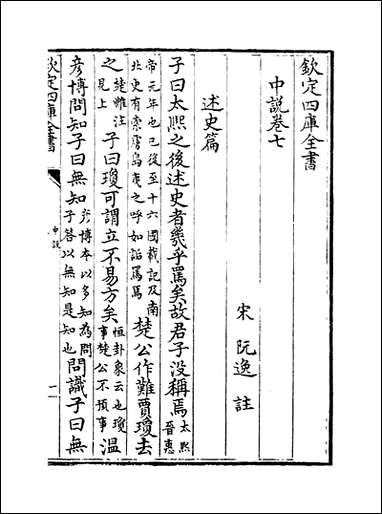 欽定四庫全書
中說卷七
宋 阮逸 註
述史篇
子曰太熙之後述史者幾乎罵矣故君子没稱焉太熙晉惠
帝元年也已後至十六國載記及南
北史有索虜島夷之呼如詬罵焉
楚公作難賈瓊去
之楚難注見上
子曰瓊可謂立不易方矣恒卦象云也瓊事楚公不預事
溫
彥博問知子曰無知彥博本以多知為問子荅以無知是知也
問識子曰無
欽定四庫全書
中說
一